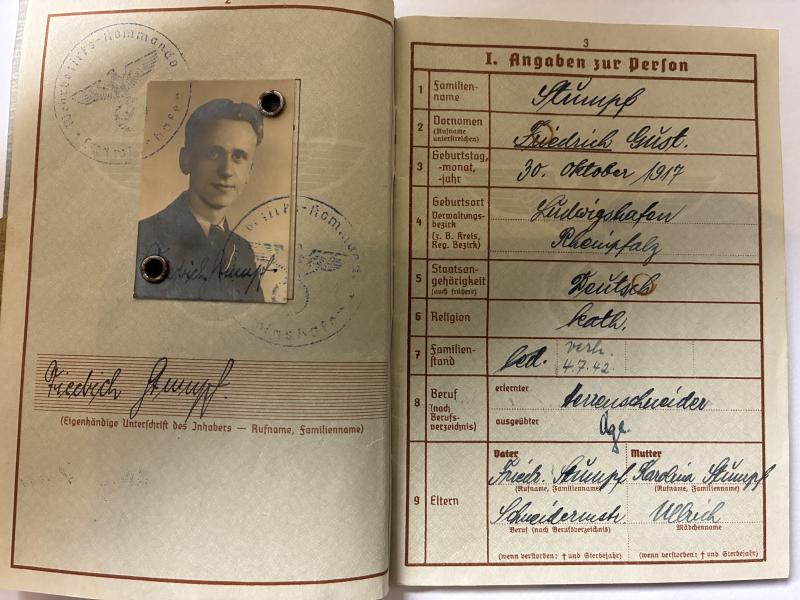 2
Wehrbezirks-Kommando
Wehrbezirks-Kommando
Friedrich Stumpf
Friedrich Stumpf.
(Eigenhändige Unterschrift des Inhabers — Rufname, Familienname)
3
I. Angaben zur Person
1 Familien-
name
Stumpf
2 Vornamen
(Rufname
unterstreichen)
Friedrich Gust.
3 Geburtstag,
-monat,
-jahr
30. Oktober 1917
4 Geburtsort
Verwaltungs-
bezirk
(z. B. Kreis,
Reg. Bezirk)
Ludwigshafen
Rheinpfalz
5 Staatsan-
gehörigkeit
(auch frühere)
Deutsch
6 Religion
kath.
7 Familien-
stand
led. verh.
4.7.42.
8 Beruf
(nach
Berufs-
verzeichnis)
erlernter
Herrenschneider
ausgeübter
9 Eltern
Vater Mutter
Friedr. Stumpf Karolina Stumpf
(Rufname, Familienname) (Rufname, Familienname)
Schneidermstr. Ullrich
Beruf (nach Berufsverzeichnis) Mädchenname
(wenn verstorben: † und Sterbejahr) (wenn verstorben: † und Sterbejahr)